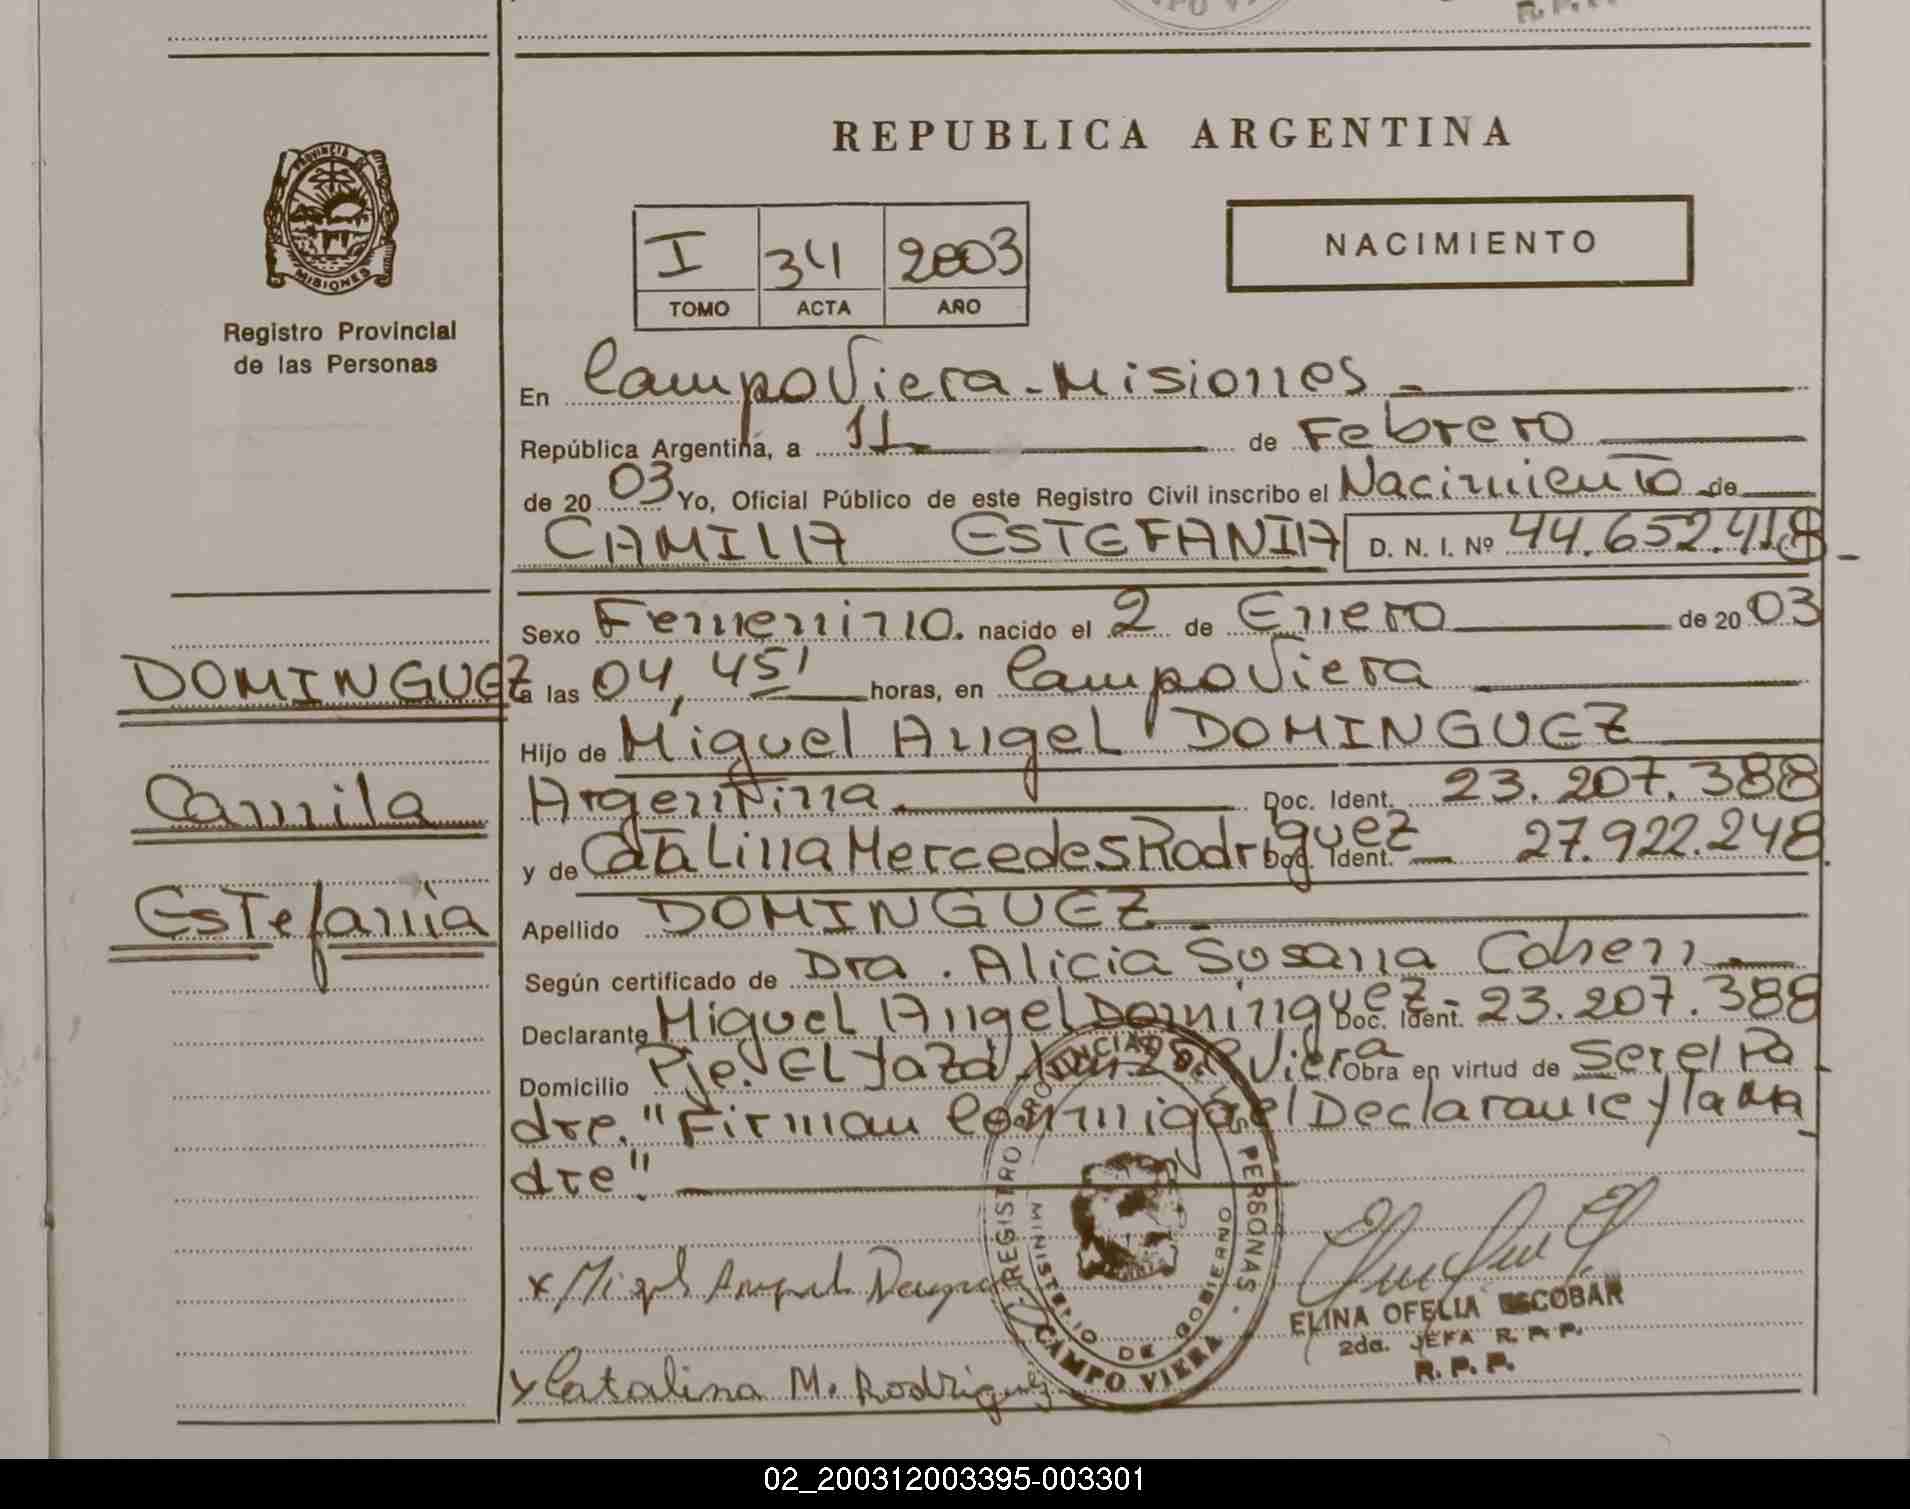 REPUBLICA ARGENTINA
PROVINCIA DE
MISIONES
Registro Provincial
de las Personas
I 34 2003
TOMO ACTA AÑO
NACIMIENTO
En Campo Viera - Misiones
República Argentina, a 11 de Febrero
de 2003 Yo, Oficial Público de este Registro Civil inscribo el Nacimiento de
CAMILA ESTEFANIA D. N. I. Nº 44.652.418
Sexo Femenino. nacido el 2 de Enero de 2003
a las 04,45' horas, en Campo Viera
Hijo de Miguel Angel DOMINGUEZ
Argentina Doc. Ident. 23.207.388
y de Catalina Mercedes Rodriguez Doc. Ident. 27.922.248
Apellido DOMINGUEZ
Según certificado de Dra. Alicia Susana Cohen
Declarante Miguel Angel Dominguez - Doc. Ident. 23.207.388
Domicilio Pje. El Yazá Campo Viera Obra en virtud de Ser el Pa
dre. "Firman Conmigo el Declarante y la Ma
dre".
DOMINGUEZ
Camila
Estefania
x Miguel Angel
x Catalina M. Rodriguez
REGISTRO PROVINCIAL DE LAS PERSONAS
MINISTERIO DE GOBIERNO
CAMPO VIERA
ELINA OFELIA ESCOBAR
2da. JEFA R. P. P.
R. P. P.
02_200312003395-003301